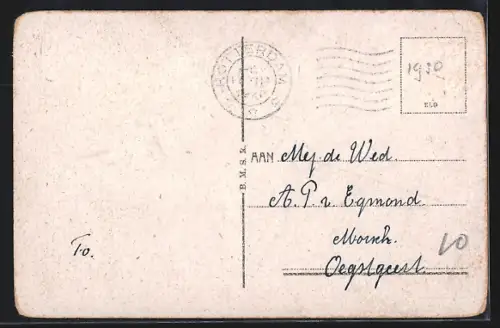 ROTTERDAM
1930
B. M. S. R.
AAN Mej. de Wed.
A. P. v. Egmond.
Morsch.
Oegstgeest.
To.
10